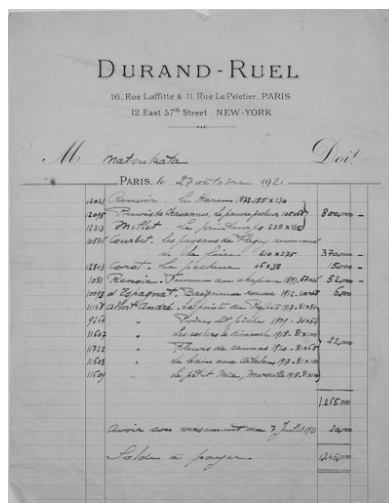 DURAND-RUEL
16, Rue Laffitte & 11, Rue Le Peletier, PARIS
12, East 57th Street, NEW-YORK
M Matsukata Doit
PARIS, le 27 octobre 1921
12021 Renoir. Le Harem 1872. 155 x 130
12095 Puvis de Chavannes, Le pauvre pêcheur 800.000 -
12313 Millet Le printemps 238 x 130
10576 Courbet. Les paysans de Flagey revenant
de la foire. 210 x 275 370.000 -
12843 Corot. Le pêcheur 46 x 38 15.000 -
1081 Renoir. Femme au chapeau 1891. 52.000 -
d'Espagnat. Baigneuse 1912.
Albert André. La pointe du 1917. 81 x
9267 " Poires et pêches 1909.
11607 " 1918. 81 x 100
11722 " Fleurs de cannas 1920. 81 x 65 22.000
11608 " Le bain aux Catalans 1917. 81 x 100
11609 " Le petit Nice, Marseille 1918. 81 x 100
1.265.000
Avoir son versement du 7 Juillet 1921 20.000
Solde à payer 1.245.000